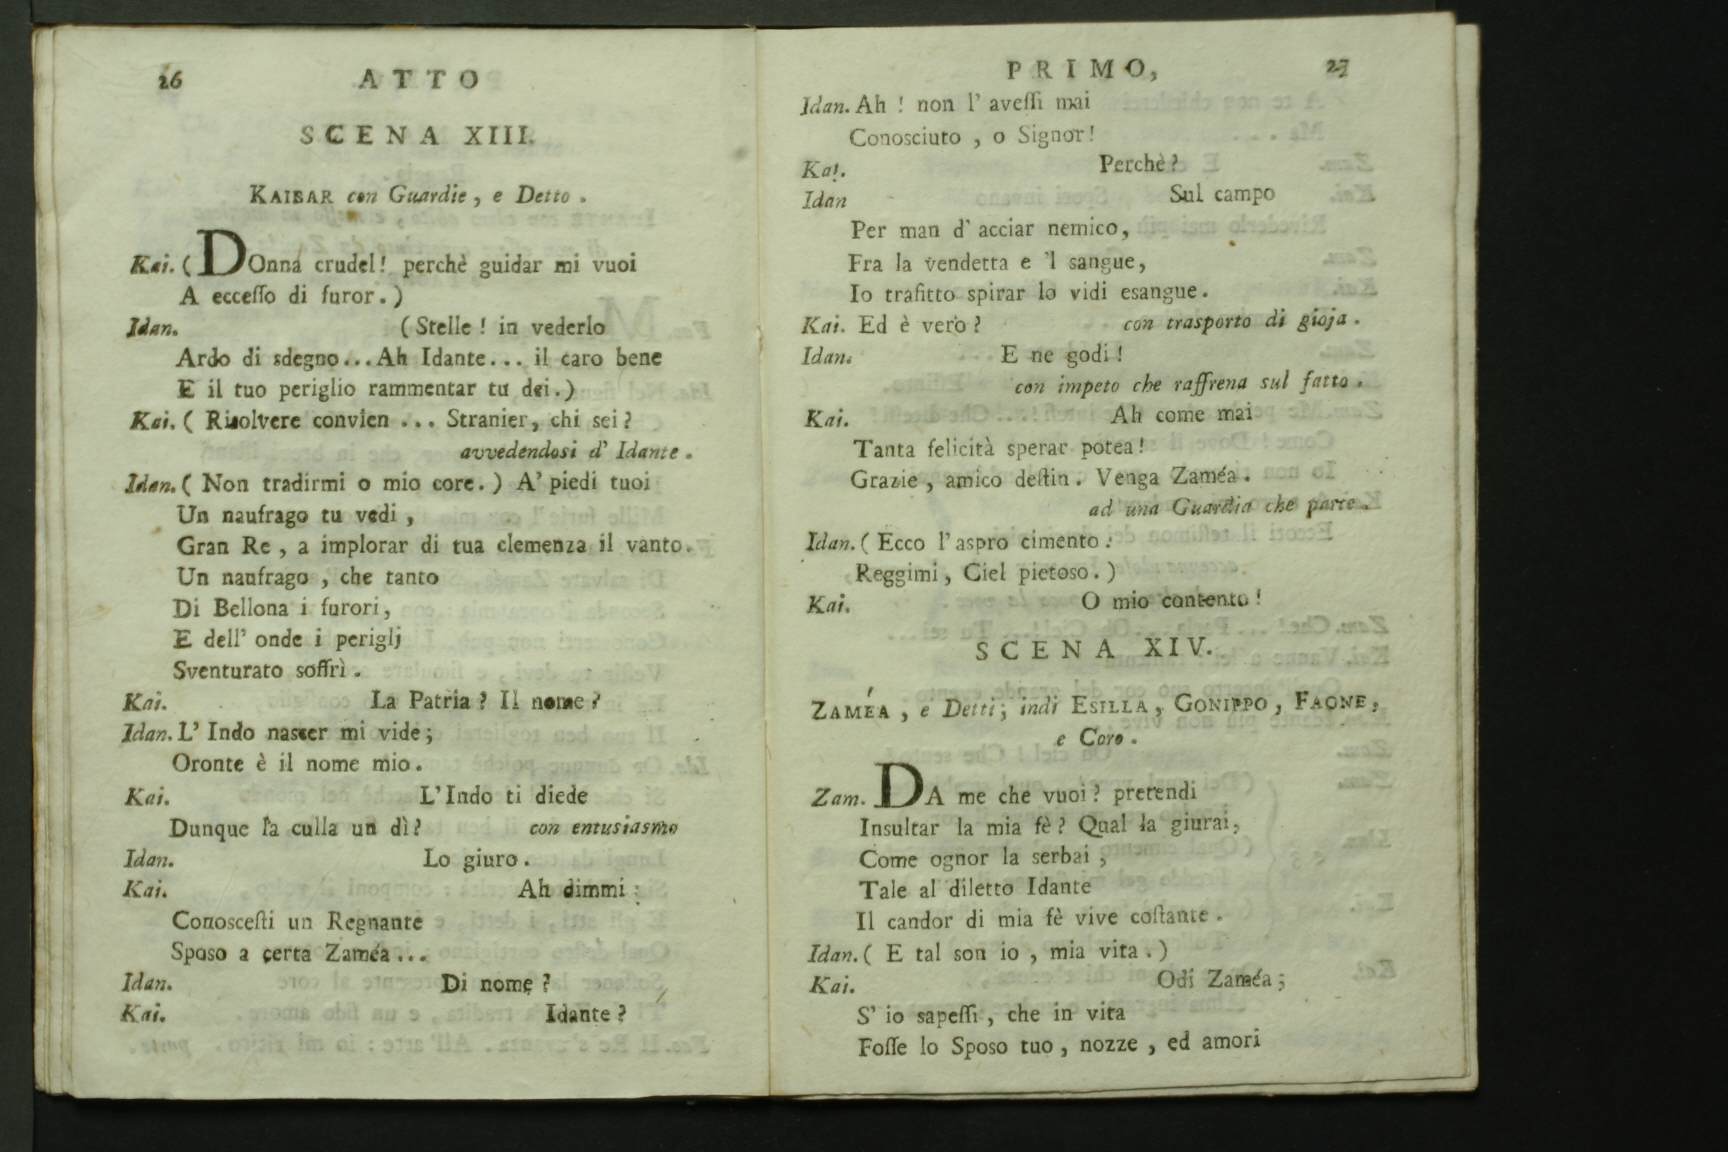 26 ATTO
SCENA XIII.
KAIBAR con Guardie, e Detto.
Kai. ( DOnna crudel! perchè guidar mi vuoi
A eccesso di furor. )
Idan. ( Stelle! in vederlo
Ardo di sdegno... Ah Idante... il caro bene
E il tuo periglio rammentar tu dei. )
Kai. ( Risolvere convien ... Stranier, chi sei?
avvedendosi d' Idante.
Idan. ( Non tradirmi o mio core. ) A' piedi tuoi
Un naufrago tu vedi,
Gran Re, a implorar di tua clemenza il vanto.
Un naufrago, che tanto
Di Bellona i furori,
E dell' onde i periglj
Sventurato soffrì.
Kai. La Patria? Il nome?
Idan. L' Indo nascer mi vide;
Oronte è il nome mio.
Kai. L' Indo ti diede
Dunque la culla un dì? con entusiasmo
Idan. Lo giuro.
Kai. Ah dimmi:
Conoscesti un Regnante
Sposo a certa Zaméa...
Idan. Di nome?
Kai. Idante?
PRIMO, 27
Idan. Ah! non l' avessi mai
Conosciuto, o Signor!
Kai. Perchè?
Idan Sul campo
Per man d' acciar nemico,
Fra la vendetta e 'l sangue,
Io trafitto spirar lo vidi esangue.
Kai. Ed è vero? con trasporto di gioja.
Idan. E ne godi!
con impeto che raffrena sul fatto.
Kai. Ah come mai
Tanta felicità sperar potea!
Grazie, amico destin. Venga Zaméa.
ad una Guardia che parte.
Idan. ( Ecco l' aspro cimento:
Reggimi, Ciel pietoso. )
Kai. O mio contento!
SCENA XIV.
ZAMÉA, e Detti; indi ESILLA, GONIPPO, FAONE,
e Coro.
Zam. DA me che vuoi? pretendi
Insultar la mia fè? Qual la giurai,
Come ognor la serbai,
Tale al diletto Idante
Il candor di mia fè vive costante.
Idan. ( E tal son io, mia vita. )
Kai. Odi Zaméa;
S' io sapessi, che in vita
Fosse lo Sposo tuo, nozze, ed amori